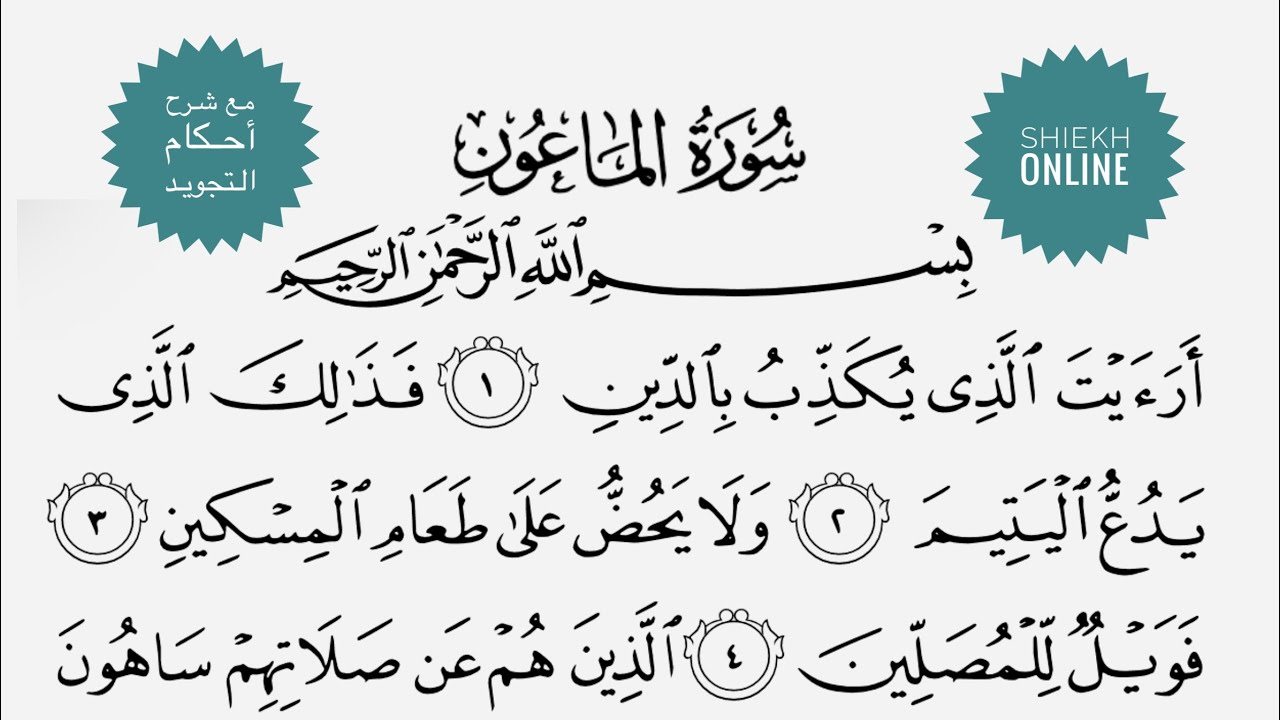 مع شرح
أحكام
التجويد
SHIEKH
ONLINE
سُورَةُ المَاعُونِ
بِسْمِ ٱللَّهِ ٱلرَّحْمَٰنِ ٱلرَّحِيمِ
أَرَءَيْتَ ٱلَّذِى يُكَذِّبُ بِٱلدِّينِ ١ فَذَٰلِكَ ٱلَّذِى
يَدُعُّ ٱلْيَتِيمَ ٢ وَلَا يَحُضُّ عَلَىٰ طَعَامِ ٱلْمِسْكِينِ ٣
فَوَيْلٌ لِّلْمُصَلِّينَ ٤ ٱلَّذِينَ هُمْ عَن صَلَاتِهِمْ سَاهُونَ